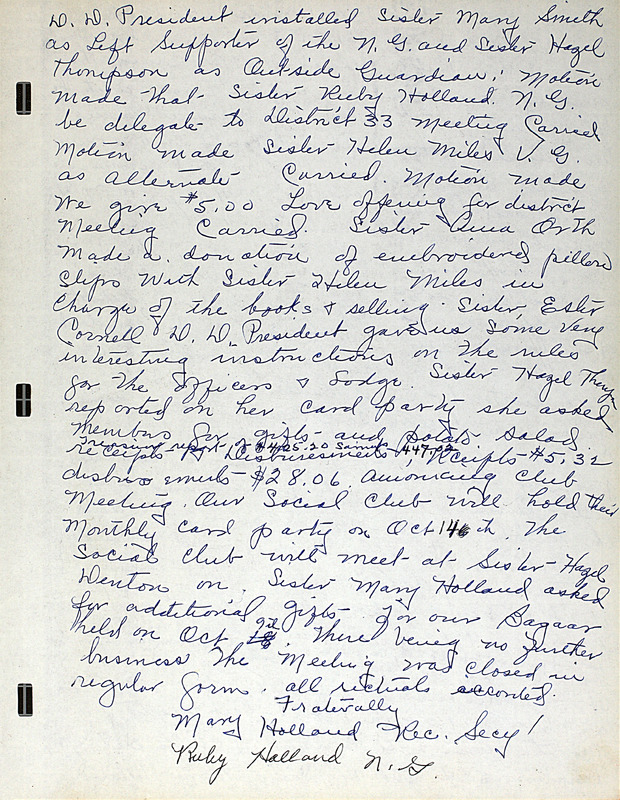 D. D. President installed Sister Mary Smith
as Left Supporter of the N. G. and Sister Hazel
Thompson as Outside Guardian; Motion
made that Sister Ruby Holland. N. G.
be delegate to District 33 Meeting Carried
Motion made Sister Helen Miles V. G.
as alternate Carried. Motion made
We give $5.00 Love offering for district
Meeting Carried. Sister Orth
Made a donation of embroidered pillow
slips With Sister Helen Miles in
Charge of the books & selling. Sister Ester
Cornell D. D. President gave us some very
interesting instructions on the rules
for the officers & Lodge. Sister Hazel
reported on her card party she asked
members for gifts and potato salad
Treasury report of 447.02
receipts & Disbursements Receipts $5.32
disbursements $28.06. announcing Club
Meeting. Our Social Club will hold their
Monthly card party on Oct 14 th. The
Social Club will meet at Sister Hazel
Denton on. Sister Mary Holland asked
for additional gifts for our Bagaar
held on Oct. There being no further
business The Meeting was closed in
regular form. all rectuals accorded.
Fratervally
Mary Holland Rec. Secy!
Ruby Holland N. G.